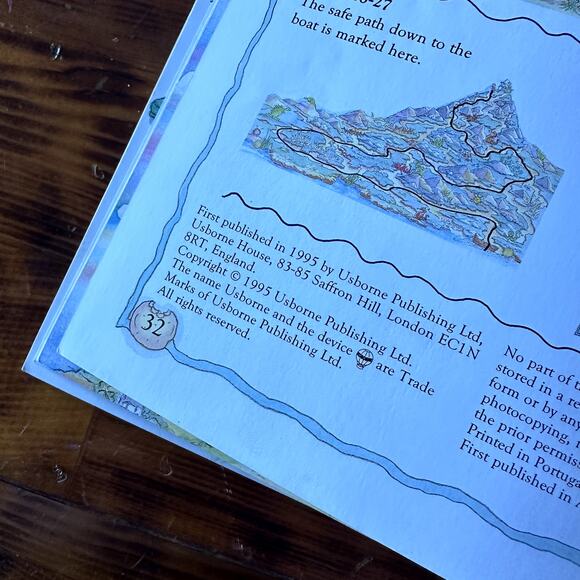 -27
The safe path down to the
boat is marked here.
First published in 1995 by Usborne Publishing Ltd,
Usborne House, 83-85 Saffron Hill, London EC1N
8RT, England.
Copyright © 1995 Usborne Publishing Ltd.
The name Usborne and the device are Trade
Marks of Usborne Publishing Ltd.
All rights reserved.
32
No part of
stored in a
form or by any
photocopying,
the prior
Printed in
First published in